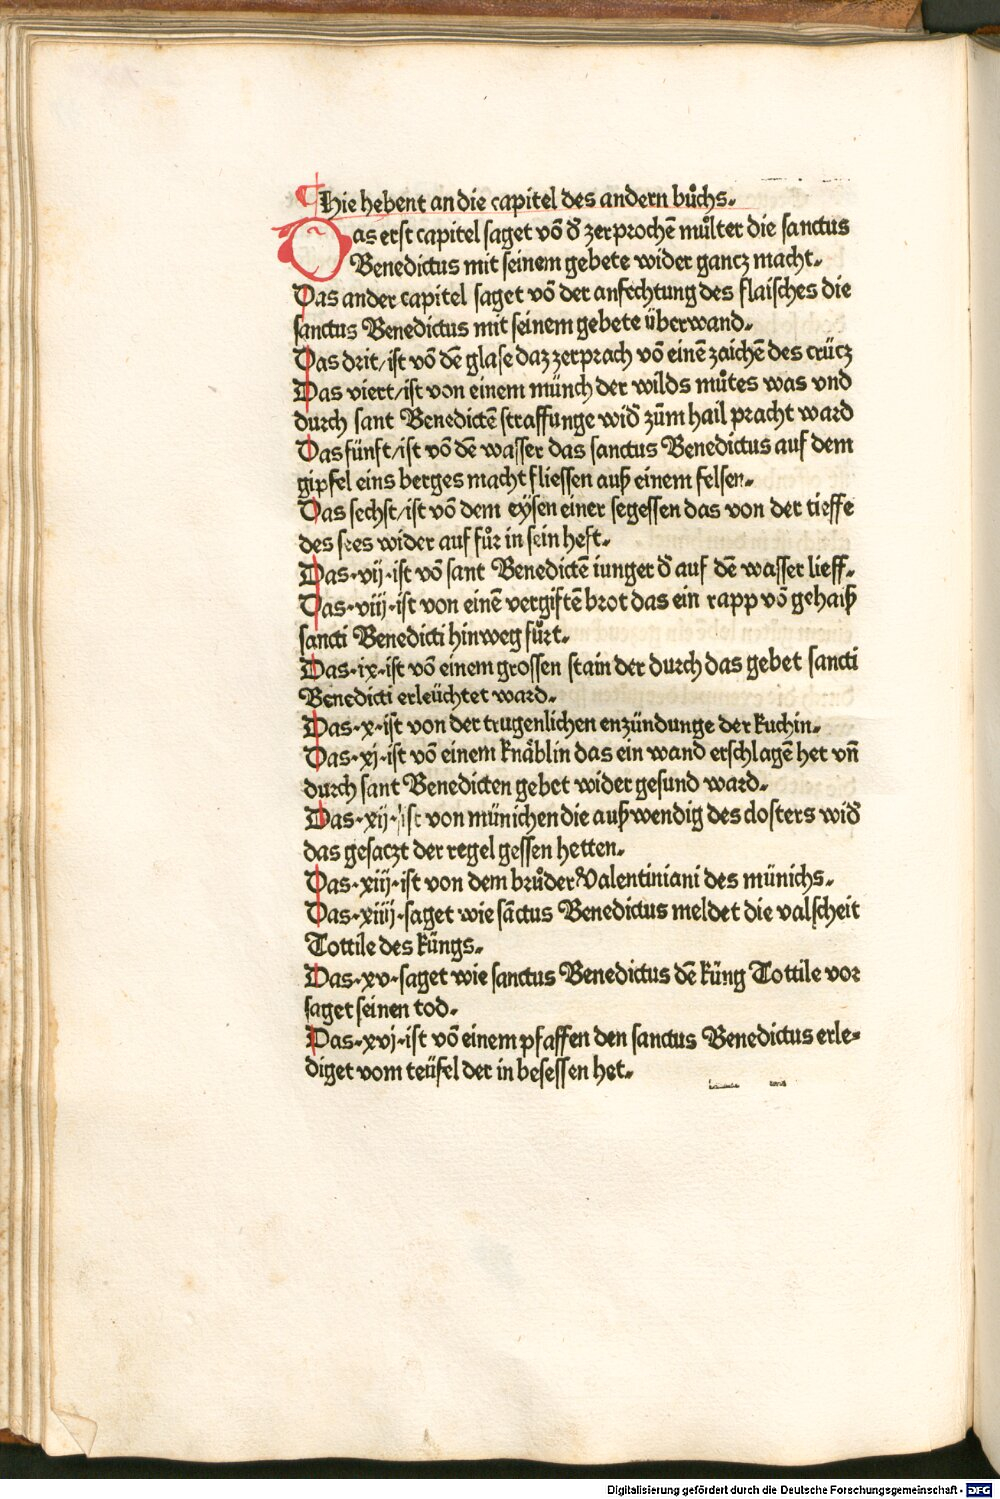 ¶ Hie hebent an die capitel des andern bůchs.
Das erst capitel saget võ d̕ zerprochẽ můlter die sanctus
Benedictus mit seinem gebete wider gancz macht.
Das ander capitel saget võ der anfechtung des flaisches die
sanctus Benedictus mit seinem gebete überwand.
Das drit/ist võ dẽ glase daz zerprach võ einẽ zaichẽ des crücz
Das viert/ist von einem münch der wilds můtes was vnd
durch sant Benedictẽ straffunge wid̕ zům hail pracht ward
Das fünft/ist võ dẽ wasser das sanctus Benedictus auf dem
gipfel eins berges macht fliessen auß einem felsen.
Das sechst/ist võ dem eysen einer segessen das von der tieffe
des sees wider auf fůr in sein heft.
Das.vij.ist võ sant Benedictẽ iunger d̕ auf dẽ wasser lieff.
Das.viij.ist von einẽ vergiftẽ brot das ein rapp võ gehaiß
sancti Benedicti hinweg fůrt.
Das.ix.ist võ einem grossen stain der durch das gebet sancti
Benedicti erleüchtet ward.
Das.x.ist von der trugenlichen enzündunge der kuchin.
Das.xj.ist võ einem knåblin das ein wand erschlagẽ het vñ
durch sant Benedicten gebet wider gesund ward.
Das.xij.ist von münichen die außwendig des closters wid̕
das gesaczt der regel gessen hetten.
Das.xiij.ist von dem brůder Valentiniani des münichs.
Das.xiiij.saget wie sãctus Benedictus meldet die valscheit
Tottile des küngs.
Das.xv.saget wie sanctus Benedictus dẽ küng Tottile vor
saget seinen tod.
Das.xvj.ist võ einem pfaffen den sanctus Benedictus erle-
diget vom teüfel der in besessen het.
Digitalisierung gefördert durch die Deutsche Forschungsgemeinschaft - DFG